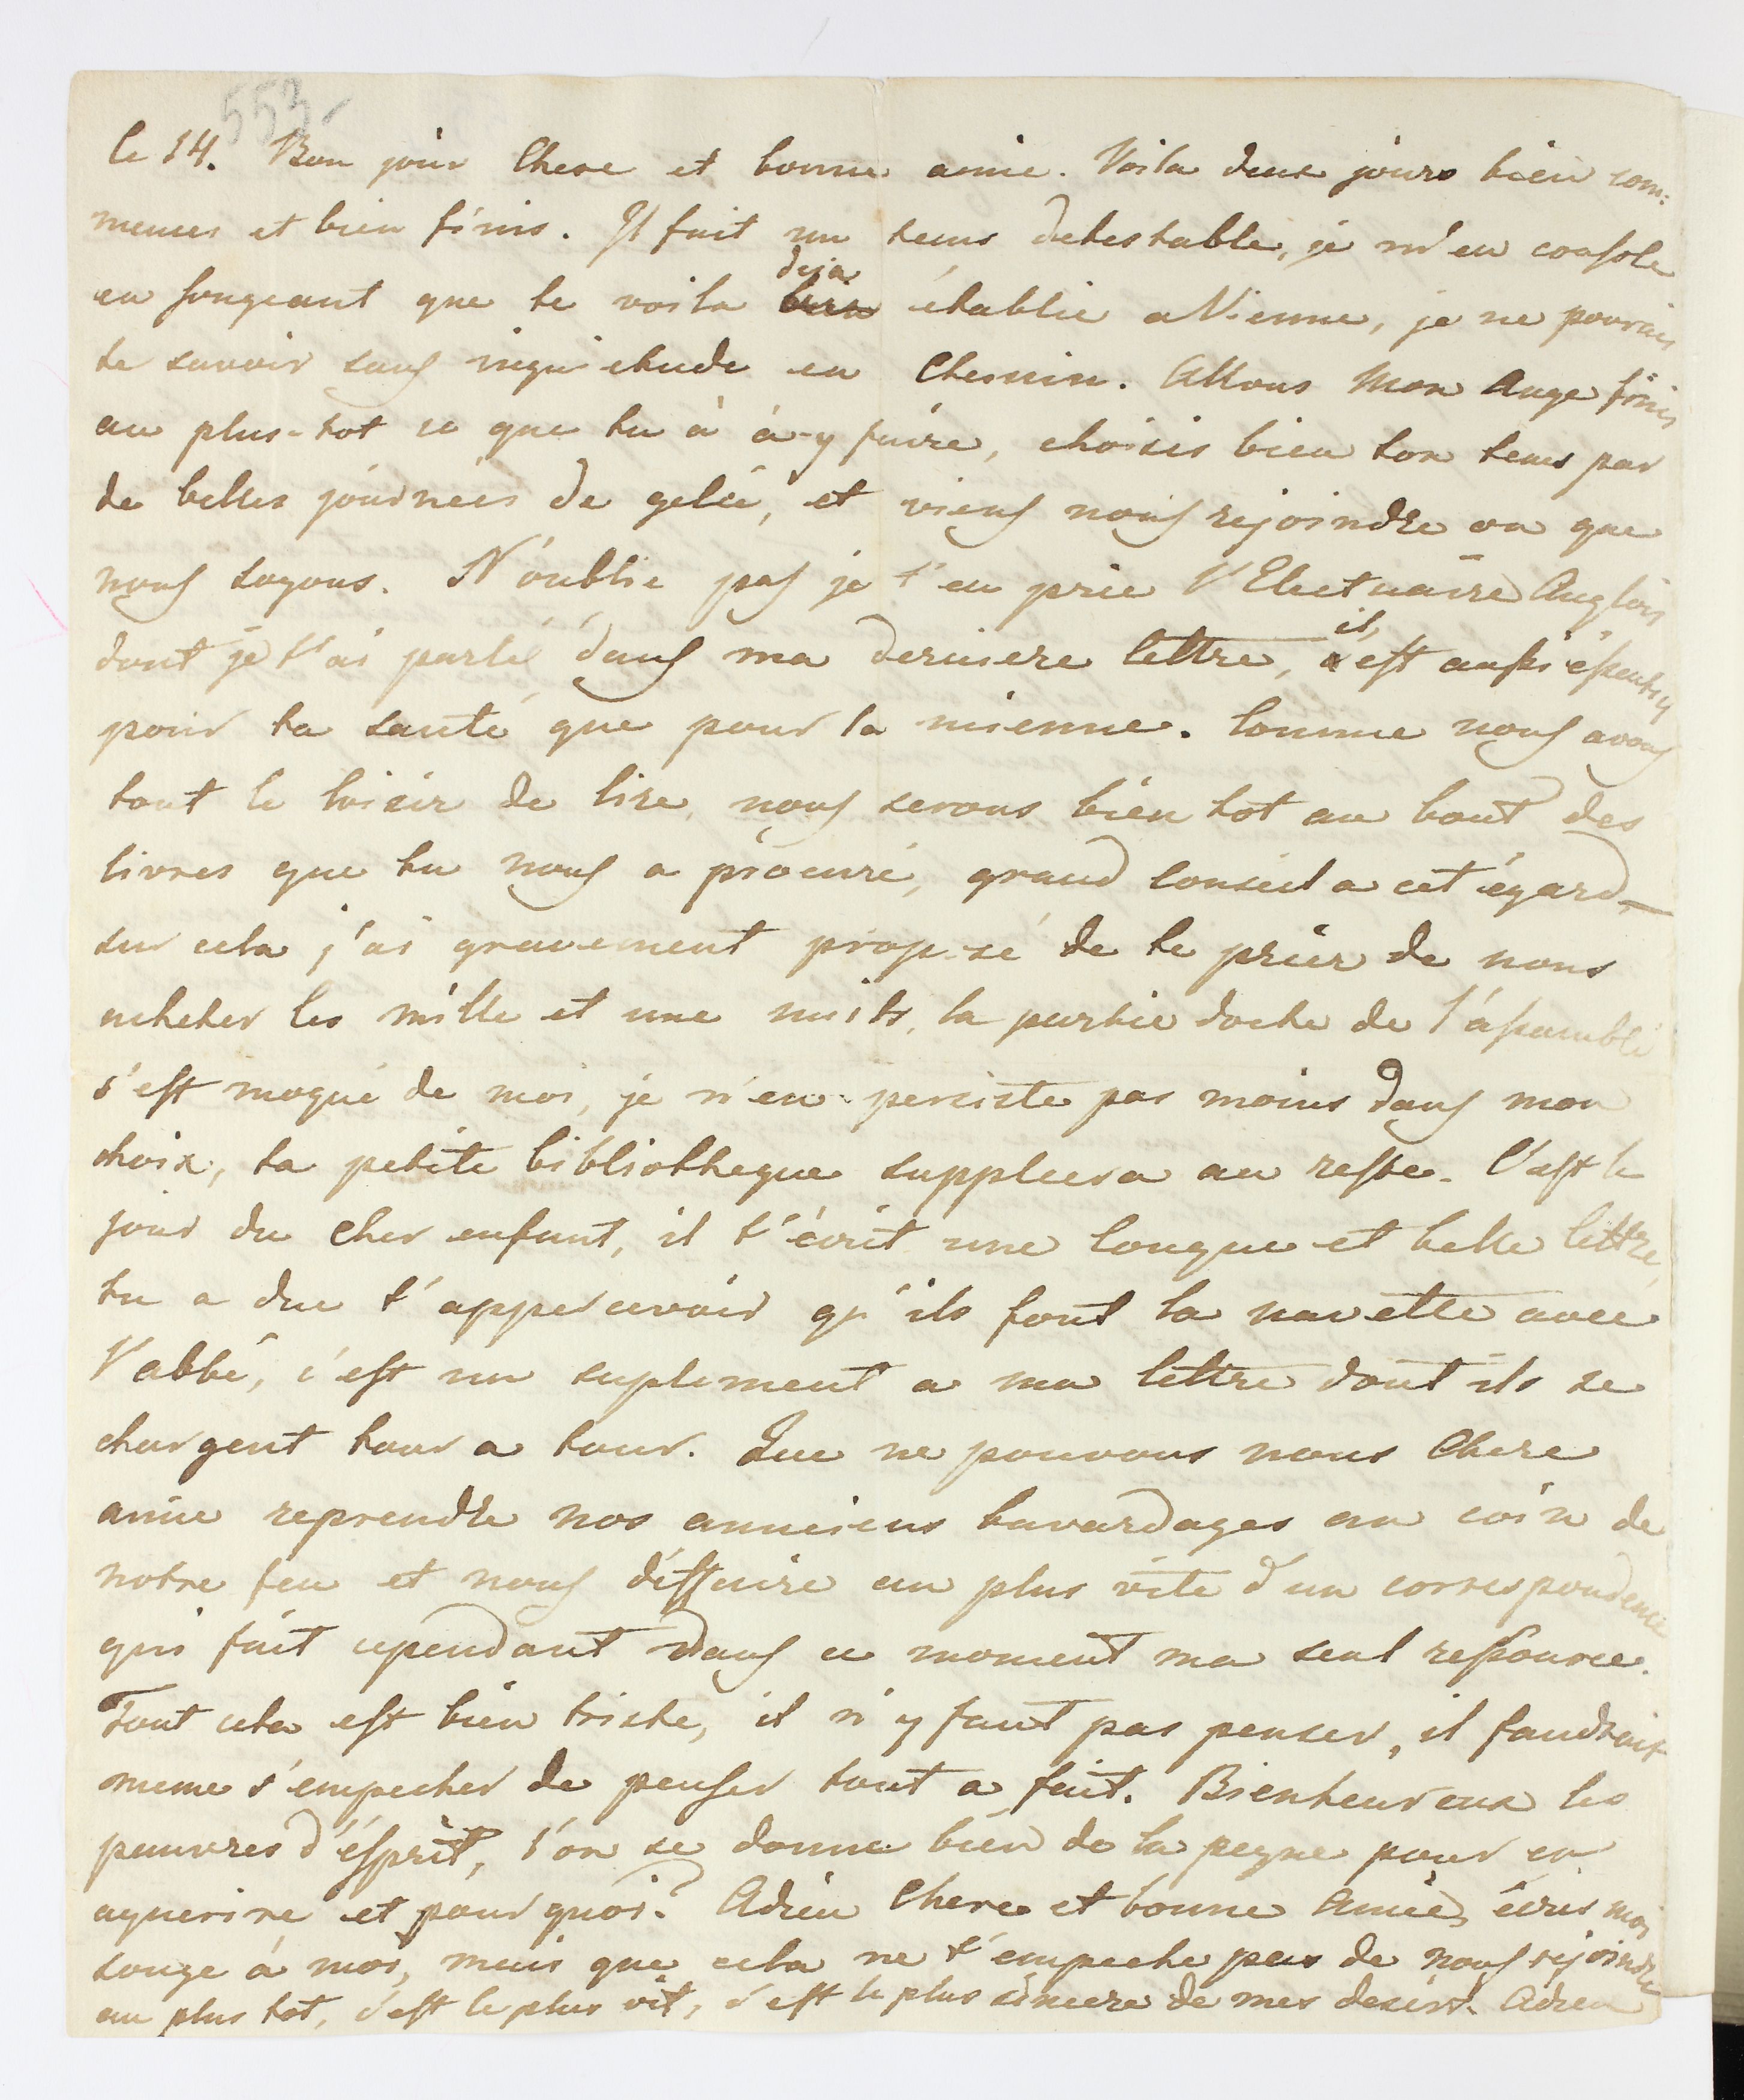 553-
Ce 14. Bon jour Chere et bonne amie. Voila deux jours bien com:
mences et bien finis. Il fait un tems detestable, je m'en console
en songeant que te voila deja établie a Vienne, je ne pourais
te savoir sans inquietude en Chemin. Allons Mon Ange finis
au plus-tot ce que tu à à-y faire, choisis bien ton tems par
de belles journées de gelée, et viens nous rejoindre ou que
nous soyons. N'oublie pas je t'en prie l'Electuaire Anglois
dont je t'ai parlé dans ma derniere lettre, il est aussi essentiel
pour ta santé que pour la mienne. Comme nous avons
tout le loisir de lire, nous serons bien tot au bout des
livres que tu nous a procuré, grand Conseil a cet égard,
sur cela j'ai gravement proposé de te prier de nous
acheter les mille et une nuits, la partie docte de l'assemblé
s'est moqué de moi, je n'en persiste pas moins dans mon
choix, ta petite bibliotheque suppleera au reste. C'est le
jour du cher enfant, il t'écrit une longue et belle lettre,
tu a due t'appercevoir qu'ils font la navette avec
l'abbé, c'est un suplement a ma lettre dont ils se
chargent tour a tour. Que ne pouvons nous Chere
amie reprendre nos anneiens bavardages au coin de
notre feu et nous deffaire au plus vite d'un correspondence
qui fait cependant dans ce moment ma seul ressource.
Tout cela est bien triste, il n'y faut pas penser, il faudrait
meme s'empecher de penser tout a fait. Bienheureux les
pauvres d'ésprit, l'on se donne bien de la peyne pour en
aquerire et pour quoi? Adieu Chere et bonne Amie, écris moi
songe à moi, mais que cela ne t'empeche pas de nous rejoindre
au plus tot, c'est le plus vit, c'est le plus sincere de mes desirs. Adieu